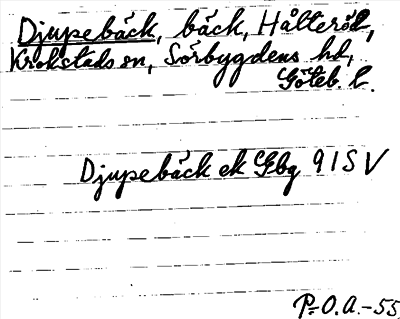 Djupebäck, bäck, Hålteröd,
Krokstads sn, Sörbygdens hd,
Göteb. l.
Djupebäck ek Gbg 9 I S V
P-O.A.-55